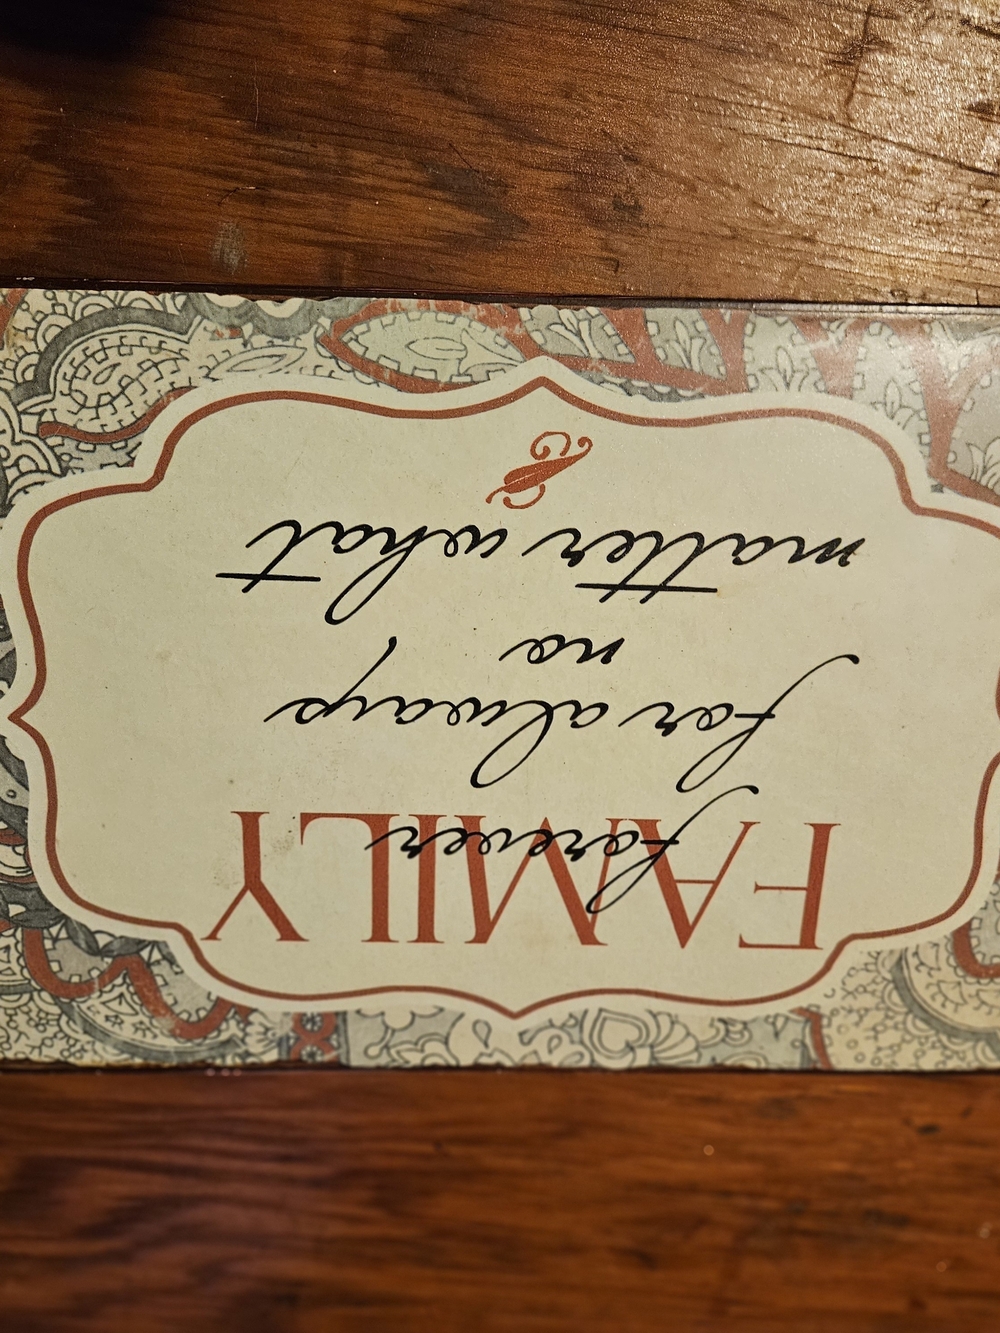 FAMILY
forever
for always
no
matter what